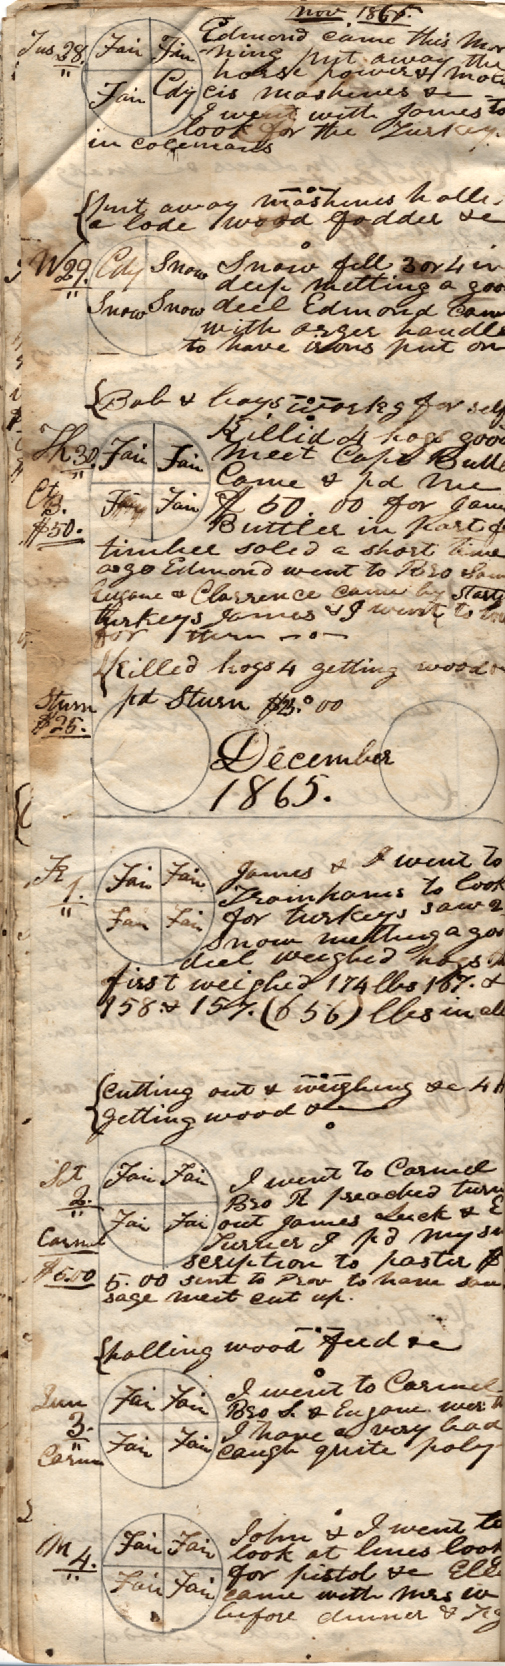 Nov 1865.
Tus 28. Fair Fair Edmond came this mor
ning put away the
horse power & mow
Fair Cdy cis mashines &c
I went with James to
look for the Turkey.
in colemans
{put away mashines halle
a lode wood fodder &c
W 29. Cdy Snow Snow fell 3 or 4 in
deep melting a goo
Snow Snow deel Edmond cam
with arger handle
to have irons put on
{Bob & boys workg for self
Th. 30. Fair Fair Killid 4 hogs good
meet Capt Butle
Came & pd me
$50. Fair Fair $ 50.00 for Jam
Buttler in part of
timber soled a short time
ago Edmond went to Bro Sam
Eugane & Clarrence came by
turkeys James & I went to
for them
{Killed hogs 4 getting wood
Sturn pd Sturn
$25.
December
1865.
Fr 1. Fair Fair James & I went to
Trainhams to look
Fair Fair for turkeys saw 2
Snow melting a goo
deel weighed hogs
first weighed 174 lbs 167. &
158. & 157. (656) lbs in all
{cutting out & weighing &c 4 h
getting wood &
Sat 2. Fair Fair I went to Carmel
Bro R preached turn
Fair Fair out James Luck & E
Carmel Turner I pd my su
scription to paster $
$5.00 5.00 sent to Prov to have sau
sage meet cut up.
{halling wood feed &c
Sun 3. Fair Fair I went to Carmel
Bro S. & Eugane wer
Fair Fair I have a very bad
Carm caugh quite poly
M 4. Fair Fair John & I went to
look at lines look
Fair Fair for pistol &c Elle
came with Mrs W
before dinner &